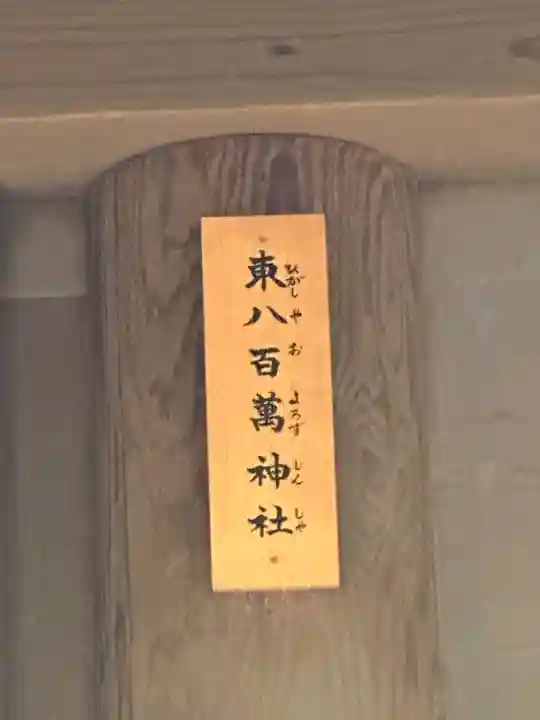 東八百萬神社
ひがしやおよろずしんしゃ